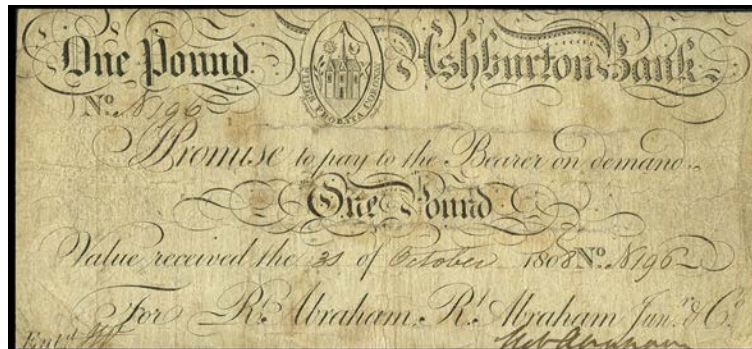 One Pound Ashburton Bank
FIDES PROBATA CORONAT
No. N196
Promise to pay to the Bearer on demand
One Pound
Value received the 31 of October 1808 No. N196
For Rt. Abraham, Rt. Abraham Junr. & Co.
Entd.